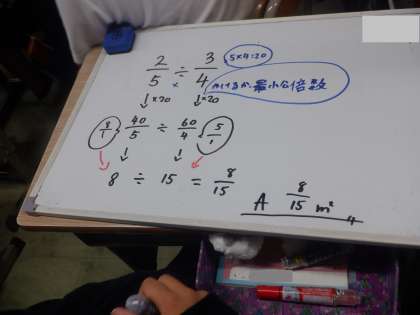 2/5 ÷ 3/4 5×4=20
× かけるか、最小公倍数
↓×20 ↓×20
8/1 40/5 ÷ 60/4 5/1
↓ ↓
8 ÷ 15 = 8/15
A 8/15 m²